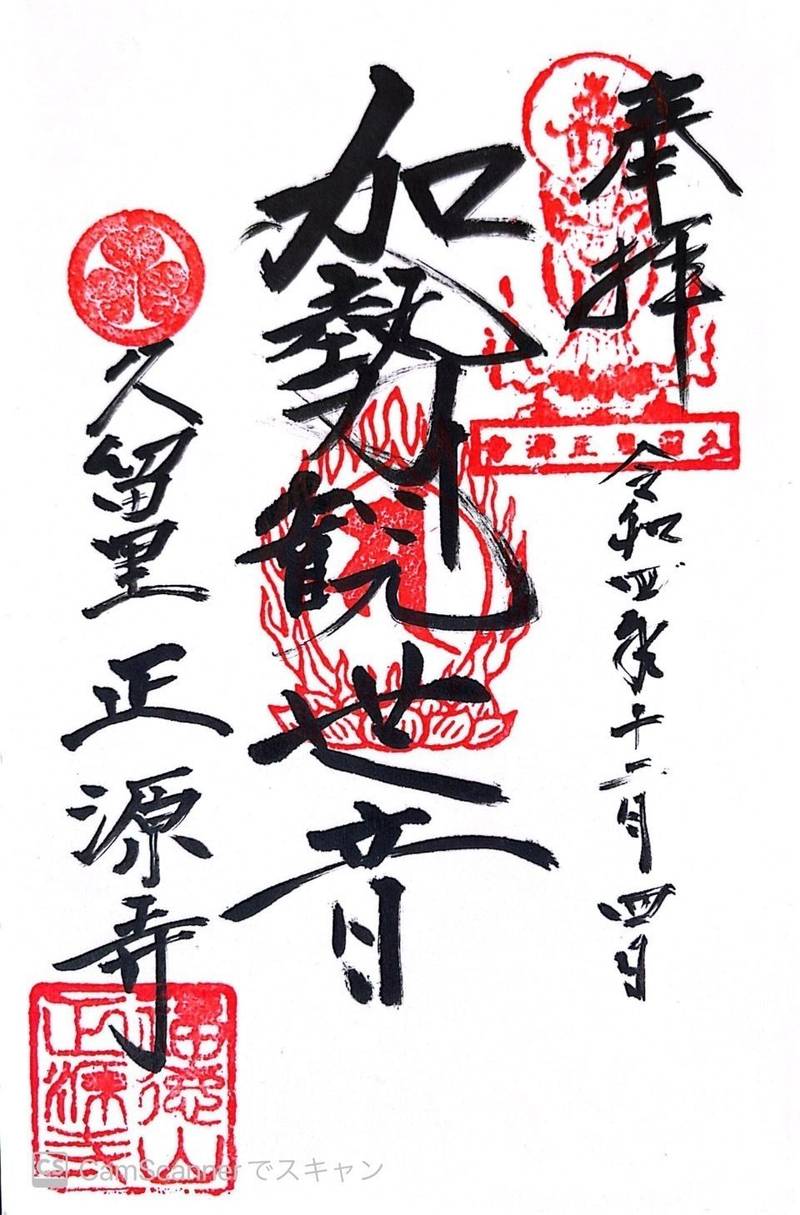 奉拝
久留里正源寺
令和四年十二月四日
加勢観世音
久留里
正源寺
福徳山
正源寺
CS CamScanner でスキャン